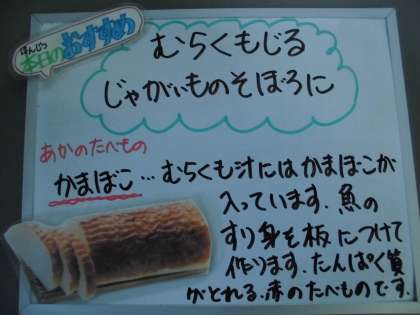 ほんじつ
本日のおすすめ
むらくもじる
じゃがいものそぼろに
あかのたべもの
かまぼこ…むらくも汁にはかまぼこが
入っています。魚の
すり身を板につけて
作ります。たんぱく質
がとれる。赤のたべものです。